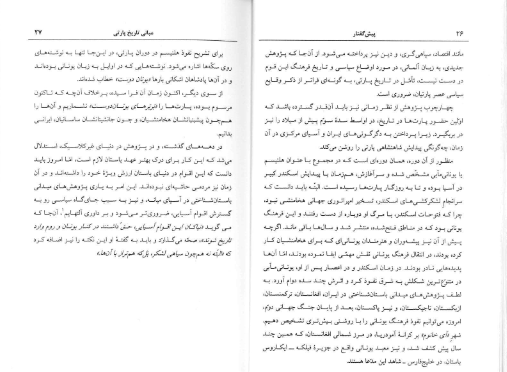 ۲۶
پیش‌گفتار
مانند اقتصاد، سپاهی‌گری، و دین نیز پرداخته می‌شود. از آن‌جا که پژوهش
جدیدی، به زبان آلمانی، در مورد اوضاع سیاسی و تاریخ فرهنگ این قوم
در دست نیست، تأمل در تاریخ پارتی، به گونه‌ای فراتر از ذکر وقایع
سیاسی عصر پارتیان، ضروری است.
چهارچوب پژوهش از نظر زمانی نیز باید آن‌قدر گسترده باشد که
اولین حضور پارت‌ها در تاریخ، در اواسط سدهٔ سوم پیش از میلاد را نیز
در برگیرد. زیرا پرداختن به دگرگونی‌های ایران و آسیای مرکزی در آن
زمان، چگونگی پیدایش شاهنشاهی پارتی را روشن می‌کند.
منظور از آن دوره، همان دوره‌ای است که در مجموع با عنوان هلنیسم
یا یونانی‌مآبی مشخص شده و سرآغازش، هم‌زمان با پیدایش اسکندر کبیر
در آسیا بوده و تا به روزگار پارت‌ها رسیده است. البته باید دانست که
سرانجام لشکرکشی‌های اسکندر، تسخیر امپراتوری جهانی هخامنشی نبود،
چرا که فتوحات اسکندر، با مرگ او دوباره از دست رفتند و این فرهنگ
یونانی بود که در مناطق فتح‌شده منتشر شد و سال‌ها باقی ماند. اگرچه
پیش از آن نیز پیشه‌وران و هنرمندان یونانی‌ای که برای هخامنشیان کار
کرده بودند، در انتقال فرهنگ یونانی نقش مهمی ایفا نموده بودند، اما آن‌ها
پدیده‌هایی نادر بودند. در زمان اسکندر و در اعصار پس از او، یونانی‌مآبی
در متنوع‌ترین شکلش به شرق نفوذ کرد و اثرش چند سده دوام آورد. به
لطف پژوهش‌های میدانی باستان‌شناختی در ایران، افغانستان، ترکمنستان،
ازبکستان، تاجیکستان، و نیز پاکستان، بعد از پایان جنگ جهانی دوم،
امروزه می‌توانیم نفوذ فرهنگ یونانی را با روشنی بیش‌تری تشخیص دهیم.
شهر «آی خانوم» بر کرانهٔ آمودریا، در مرز شمالی افغانستان، که همین چند
سال پیش کشف شد، و نیز معبد یونانی واقع در جزیرهٔ فیلکه ـ ایکاروس
باستان، در خلیج‌فارس ـ شاهد این مدعا هستند.
مبانی تاریخ پارتی
۲۷
برای تشریح نفوذ هلنیسم در دوران پارتی، در این‌جا تنها به نوشته‌های
روی سکه‌ها اشاره می‌شود. نوشته‌هایی که در اوایل به زبان یونانی بوده‌اند
و در آن‌ها پادشاهان اشکانی بارها «یونان دوست» خطاب شده‌اند.
از سوی دیگر، اکنون زمان آن فرا رسیده، برخلاف آن‌چه که تاکنون
مرسوم بوده، پارت‌ها را «بربرهای یونان‌دوست» نشماریم و آن‌ها را
هم‌چون پیشینانشان هخامنشیان، و چون جانشینانشان ساسانیان، ایرانی
بدانیم.
در دهه‌های گذشته، و در پژوهش در دنیای غیرکلاسیک، استدلال
می‌شد که این کار برای درک بهتر عهد باستان لازم است. اما امروز باید
دانست که این اقوام در دنیای باستان ارزش ویژهٔ خود را داشته‌اند و در آن
زمان نیز مردمی حاشیه‌ای نبوده‌اند. این امر به یاری پژوهش‌های میدانی
باستان‌شناختی در آسیای میانه، و نیز به سبب جای‌گاه سیاسی رو به
گسترش اقوام آسیایی، ضروری‌تر می‌شود و بر داوری آلتهایم، آن‌جا که
می‌گوید «نیاکان این اقوام آسیایی، حق داشتند در کنار یونان و روم وارد
تاریخ شوند»، صحه می‌گذارد و باید به گفتهٔ او این نکته را نیز اضافه کرد
که «البته نه هم‌چون سپاهی لشکر، بل‌که هم‌تراز با آن‌ها.»